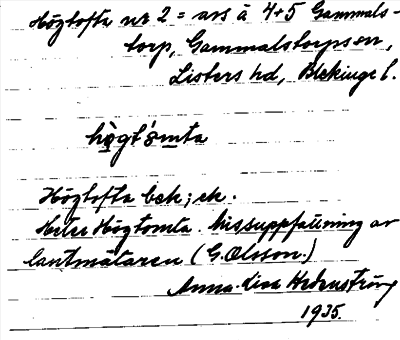 Högtofta nr 2 = avs å 4+5 Gammals-
torp, Gammalstorps sn,
Listers hd, Blekinge l.
hògt́ómta
Högtofta bek; ek.
Heter Högtomta. Missuppfattning av
lantmätaren (G. Olsson.)
Anna-Lisa Hedenström
1935.